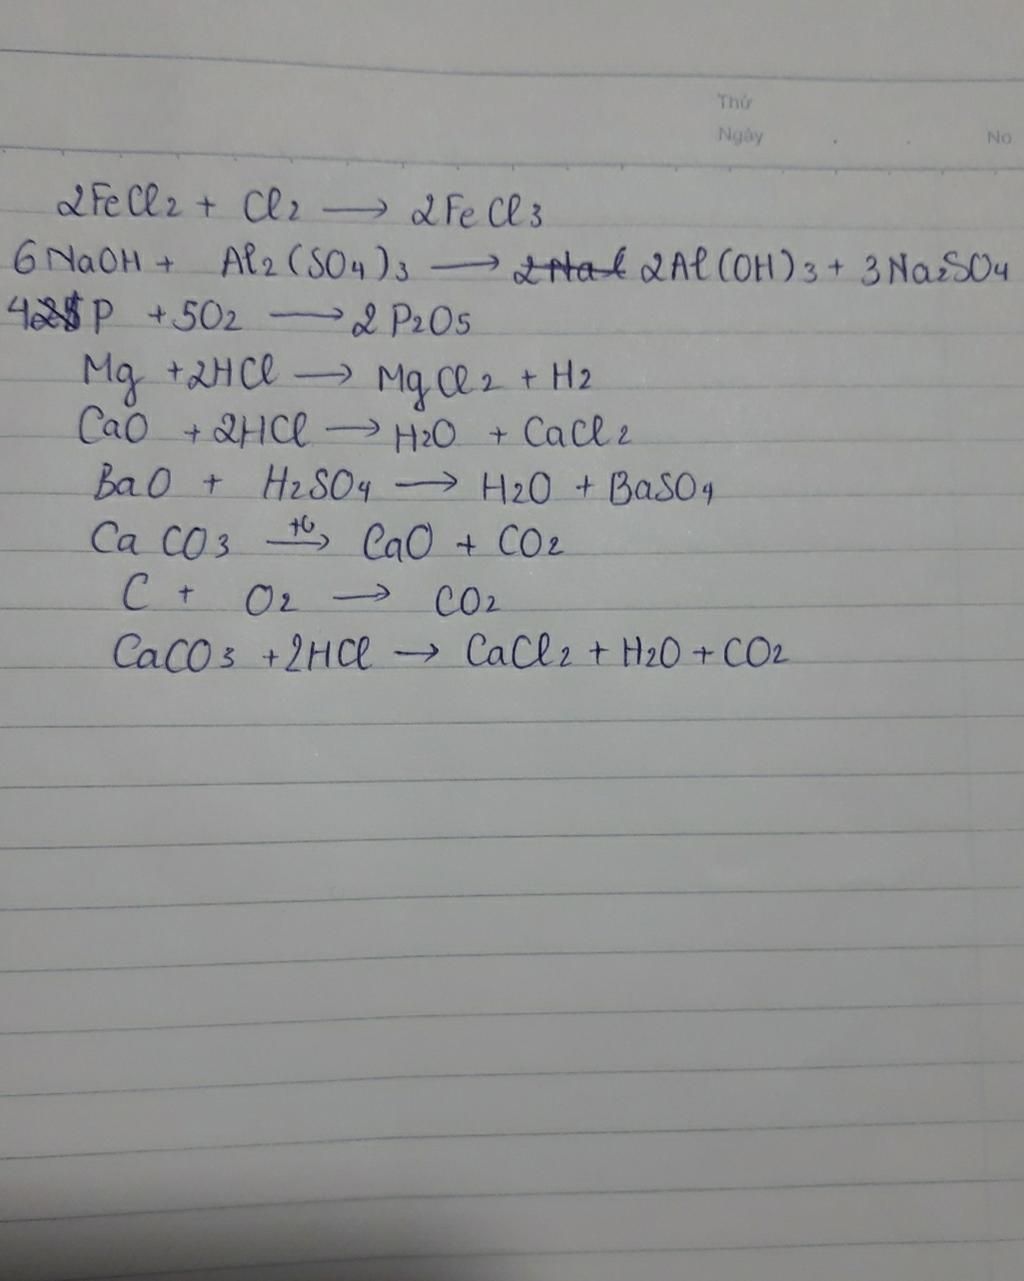 Thứ
Ngày No
2FeCl2 + Cl2 → 2FeCl3
6NaOH + Al2(SO4)3 → 2Al(OH)3 + 3Na2SO4
4P + 5O2 → 2P2O5
Mg + 2HCl → MgCl2 + H2
CaO + 2HCl → H2O + CaCl2
BaO + H2SO4 → H2O + BaSO4
CaCO3 → CaO + CO2
C + O2 → CO2
CaCO3 + 2HCl → CaCl2 + H2O + CO2